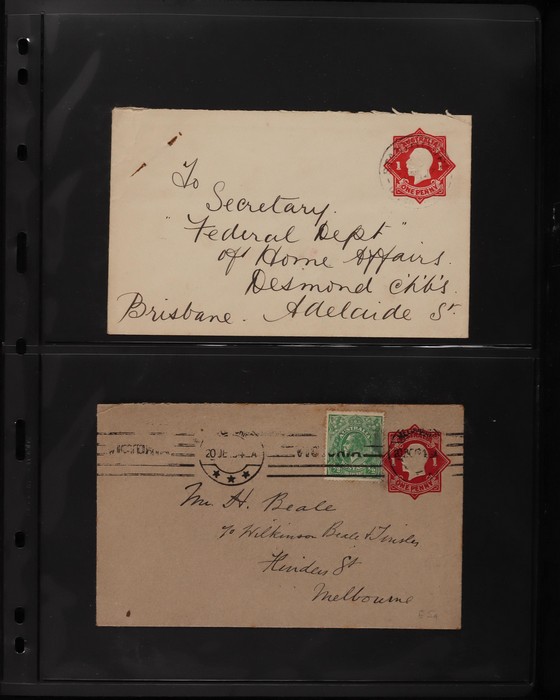 AUSTRALIA
1 1
ONE PENNY
To
Secretary.
"Federal Dept"
of Home Affairs.
Desmond Ch'b's.
Brisbane. Adelaide St.
20 DE
AUSTRALIA
1
ONE PENNY
Mr H. Beale
c/o Wilkinson Beale & Tinsley
Flinders St
Melbourne